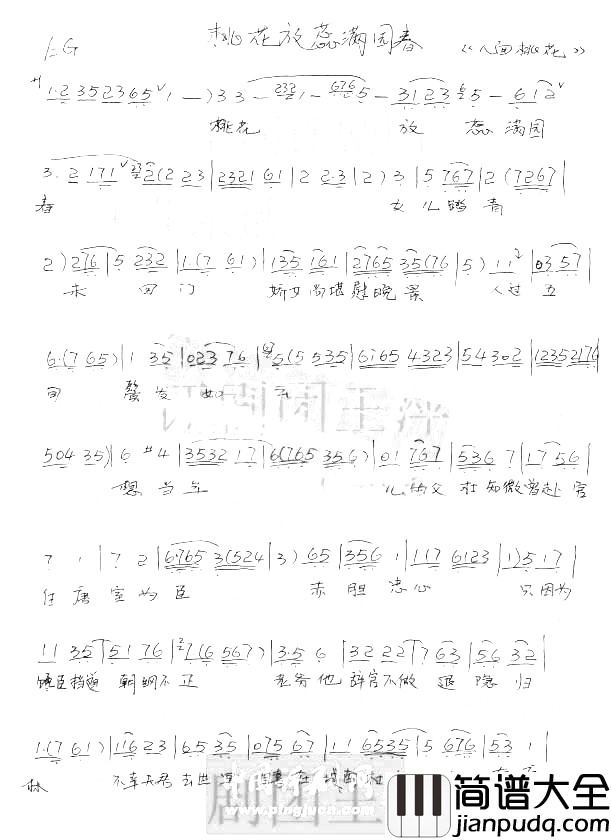 1=G 桃花放蕊满园春 《人面桃花》
サ1·2 352365ˇ1 — ) 3 3 — 232 1 — 676 5 — 3123 5 — 612ˇ
桃花 放 蕊 满园
3· 2 171ˇ 2(2 23|2321 61|2 2·3|2) 3|5 767|2(7267|
春 女儿踏青
2) 276|5 232|1·(7 61)|135 161|2765 35(76|5) 11|03 57|
未 回门 娇女尚堪慰晚景 人过五
6·(7 65)|1 35|023 76|5(5 535|6165 4323|54 302|1235 2176|
旬 鬓发如云
504 35)|6 #4|3532 17|6(765 356)|01 767|536 7|17 56|
想当年 儿的父 杜知微曾赴官
7 1|7 2|6765 3(524|3) 65|356 1|1(7 6123|1)5 17|
任唐室为臣 赤胆忠心 只因为
11 35|51 76|7(6 567)|3·5 6|32 22|7 63|56 32|
臣挡道 朝纲不正 老爷他 辞官不做 退隐归
1·(7 61)|116 23|65 35|075 67|11 6535|5 676|53 1
林 不幸夫君去世早
中国评剧网
www.pingjucn.com
简谱大全
jianpudq.com